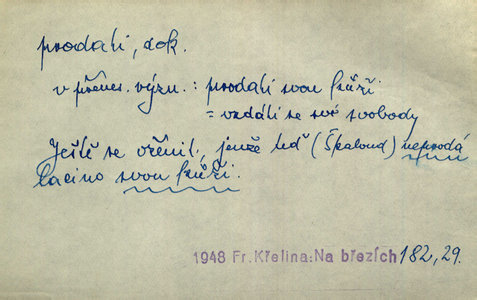 prodati, dok.
v přenes. význ. : prodati svou kůži
= vzdáti se své svobody
Ještě se ožení, jenže teď (Škaloud) neprodá
lacino svou kůži.
1948 Fr. Křelina: Na březích 182, 29.